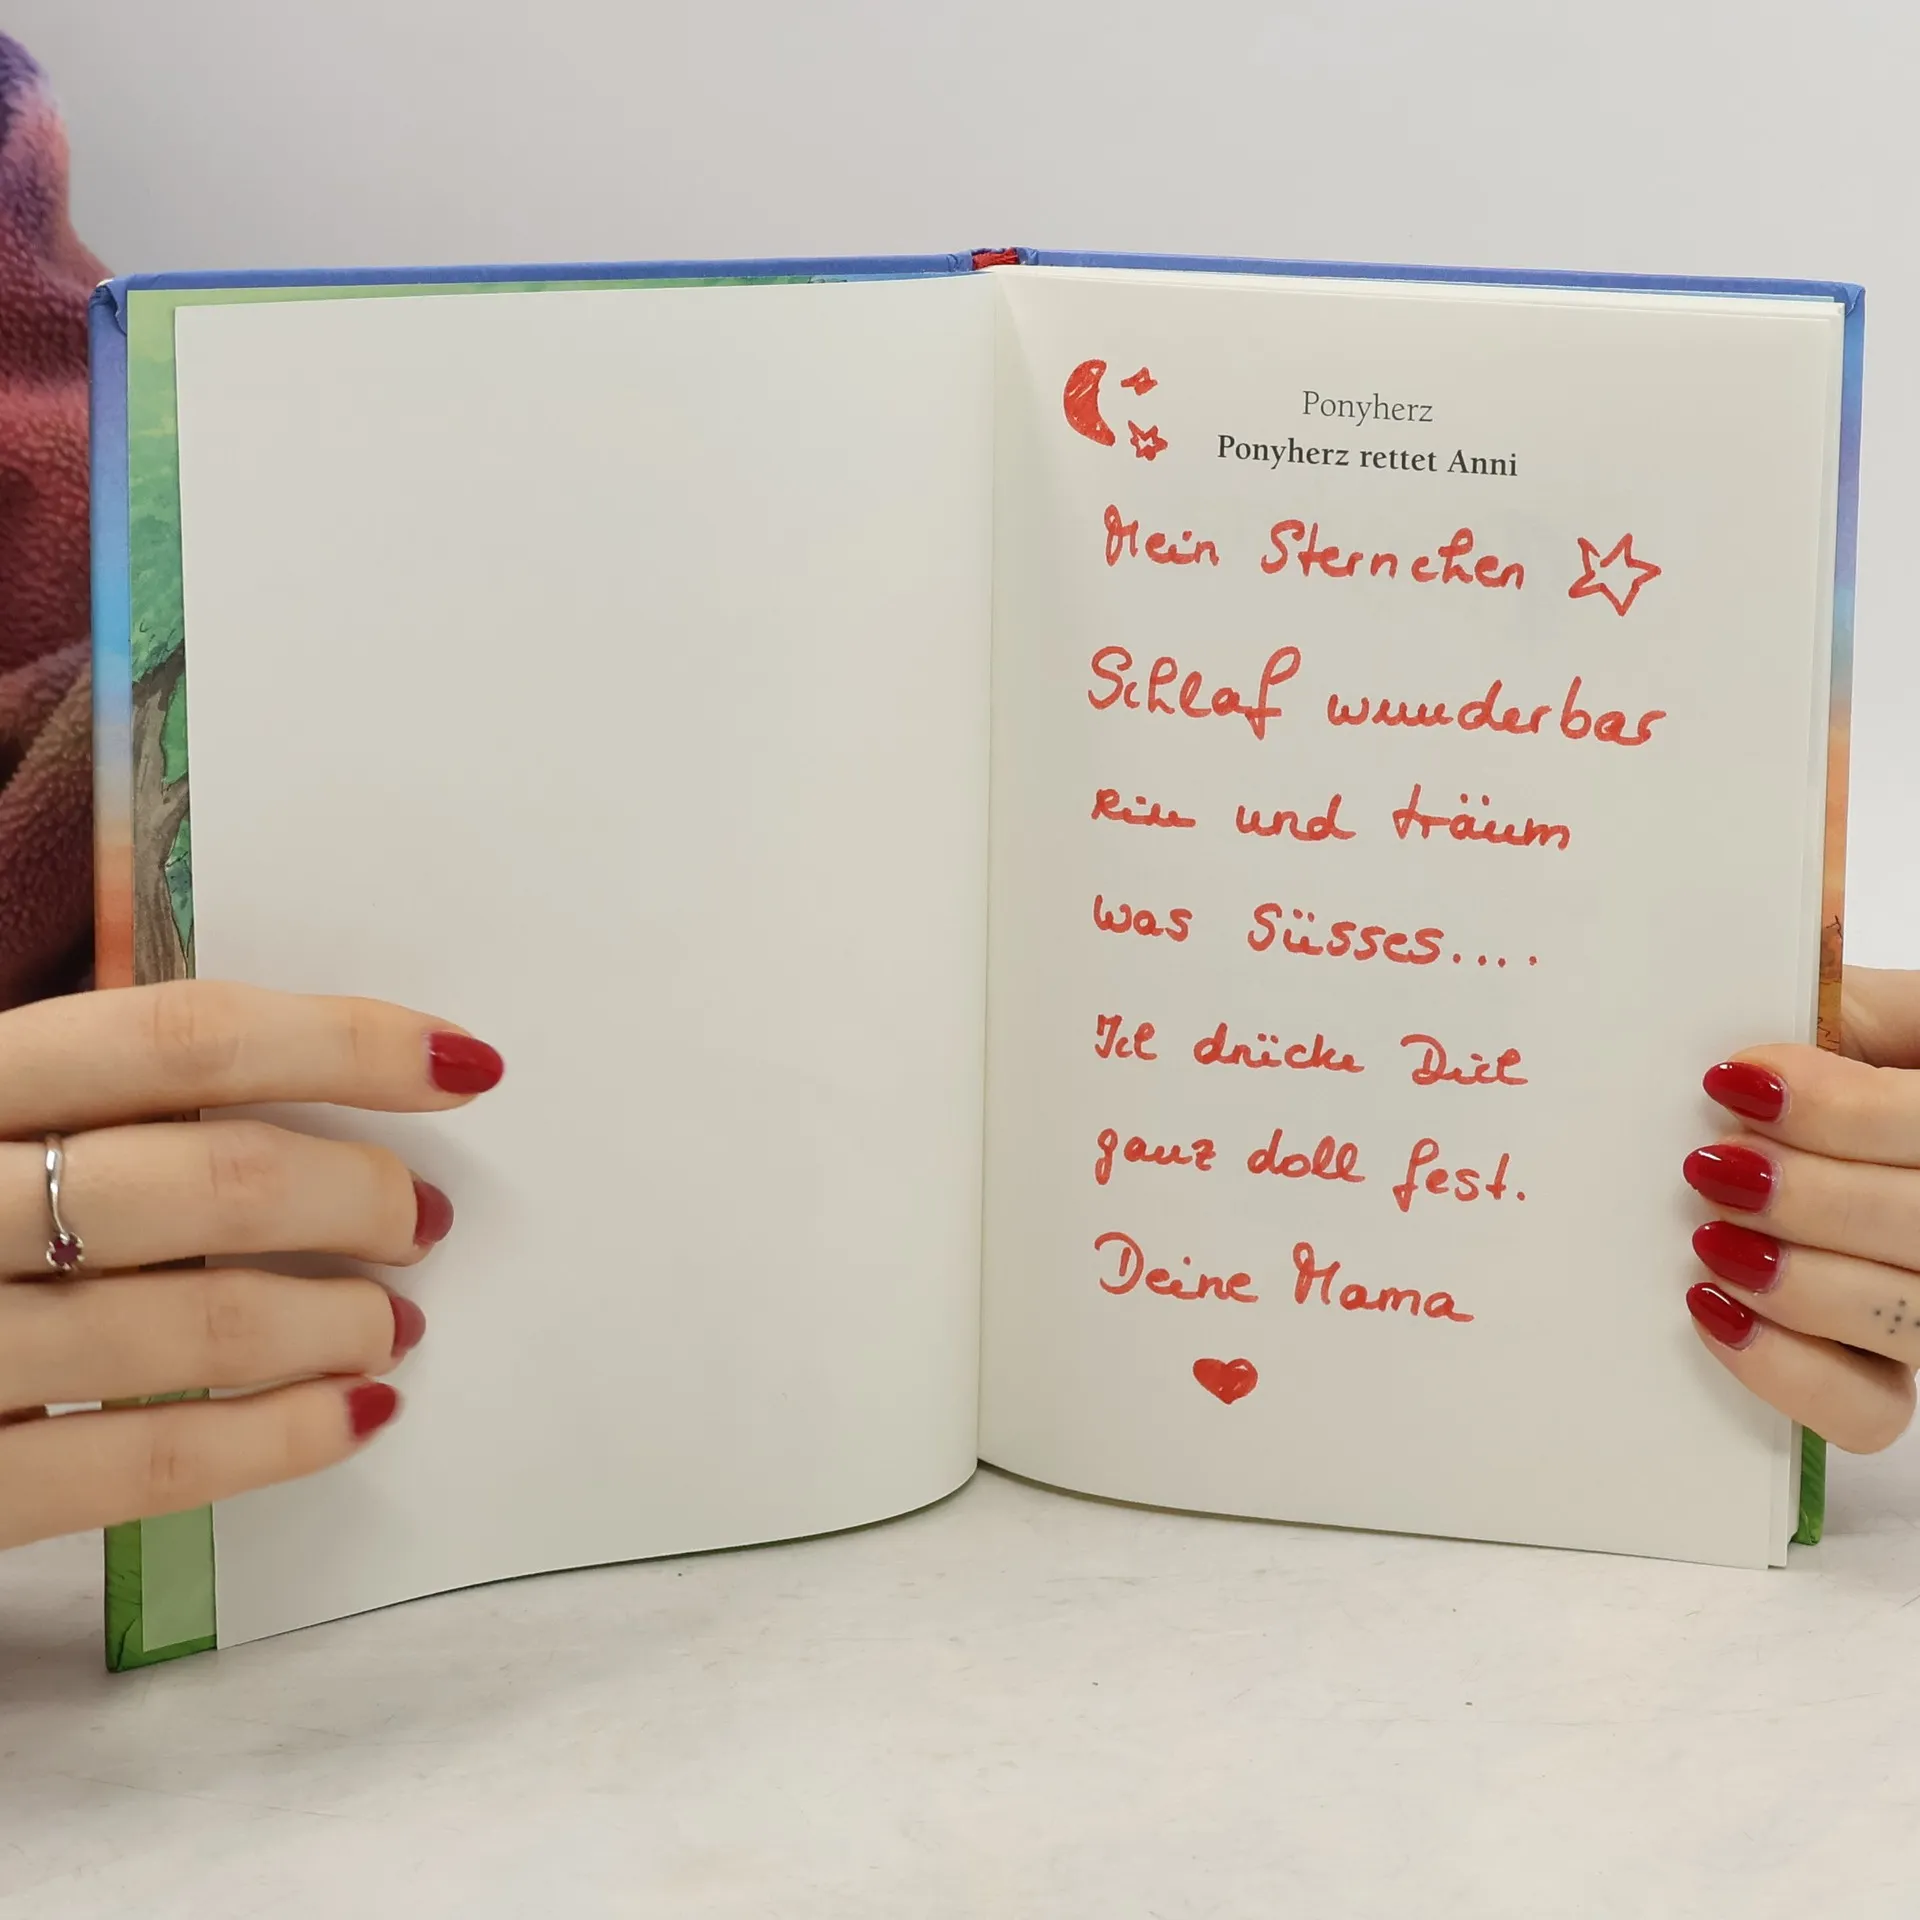 Ponyherz
Ponyherz rettet Anni
Mein Sternchen
Schlaf wunderbar
ein und träum
was Süsses....
Ich drücke Dich
ganz doll fest.
Deine Mama